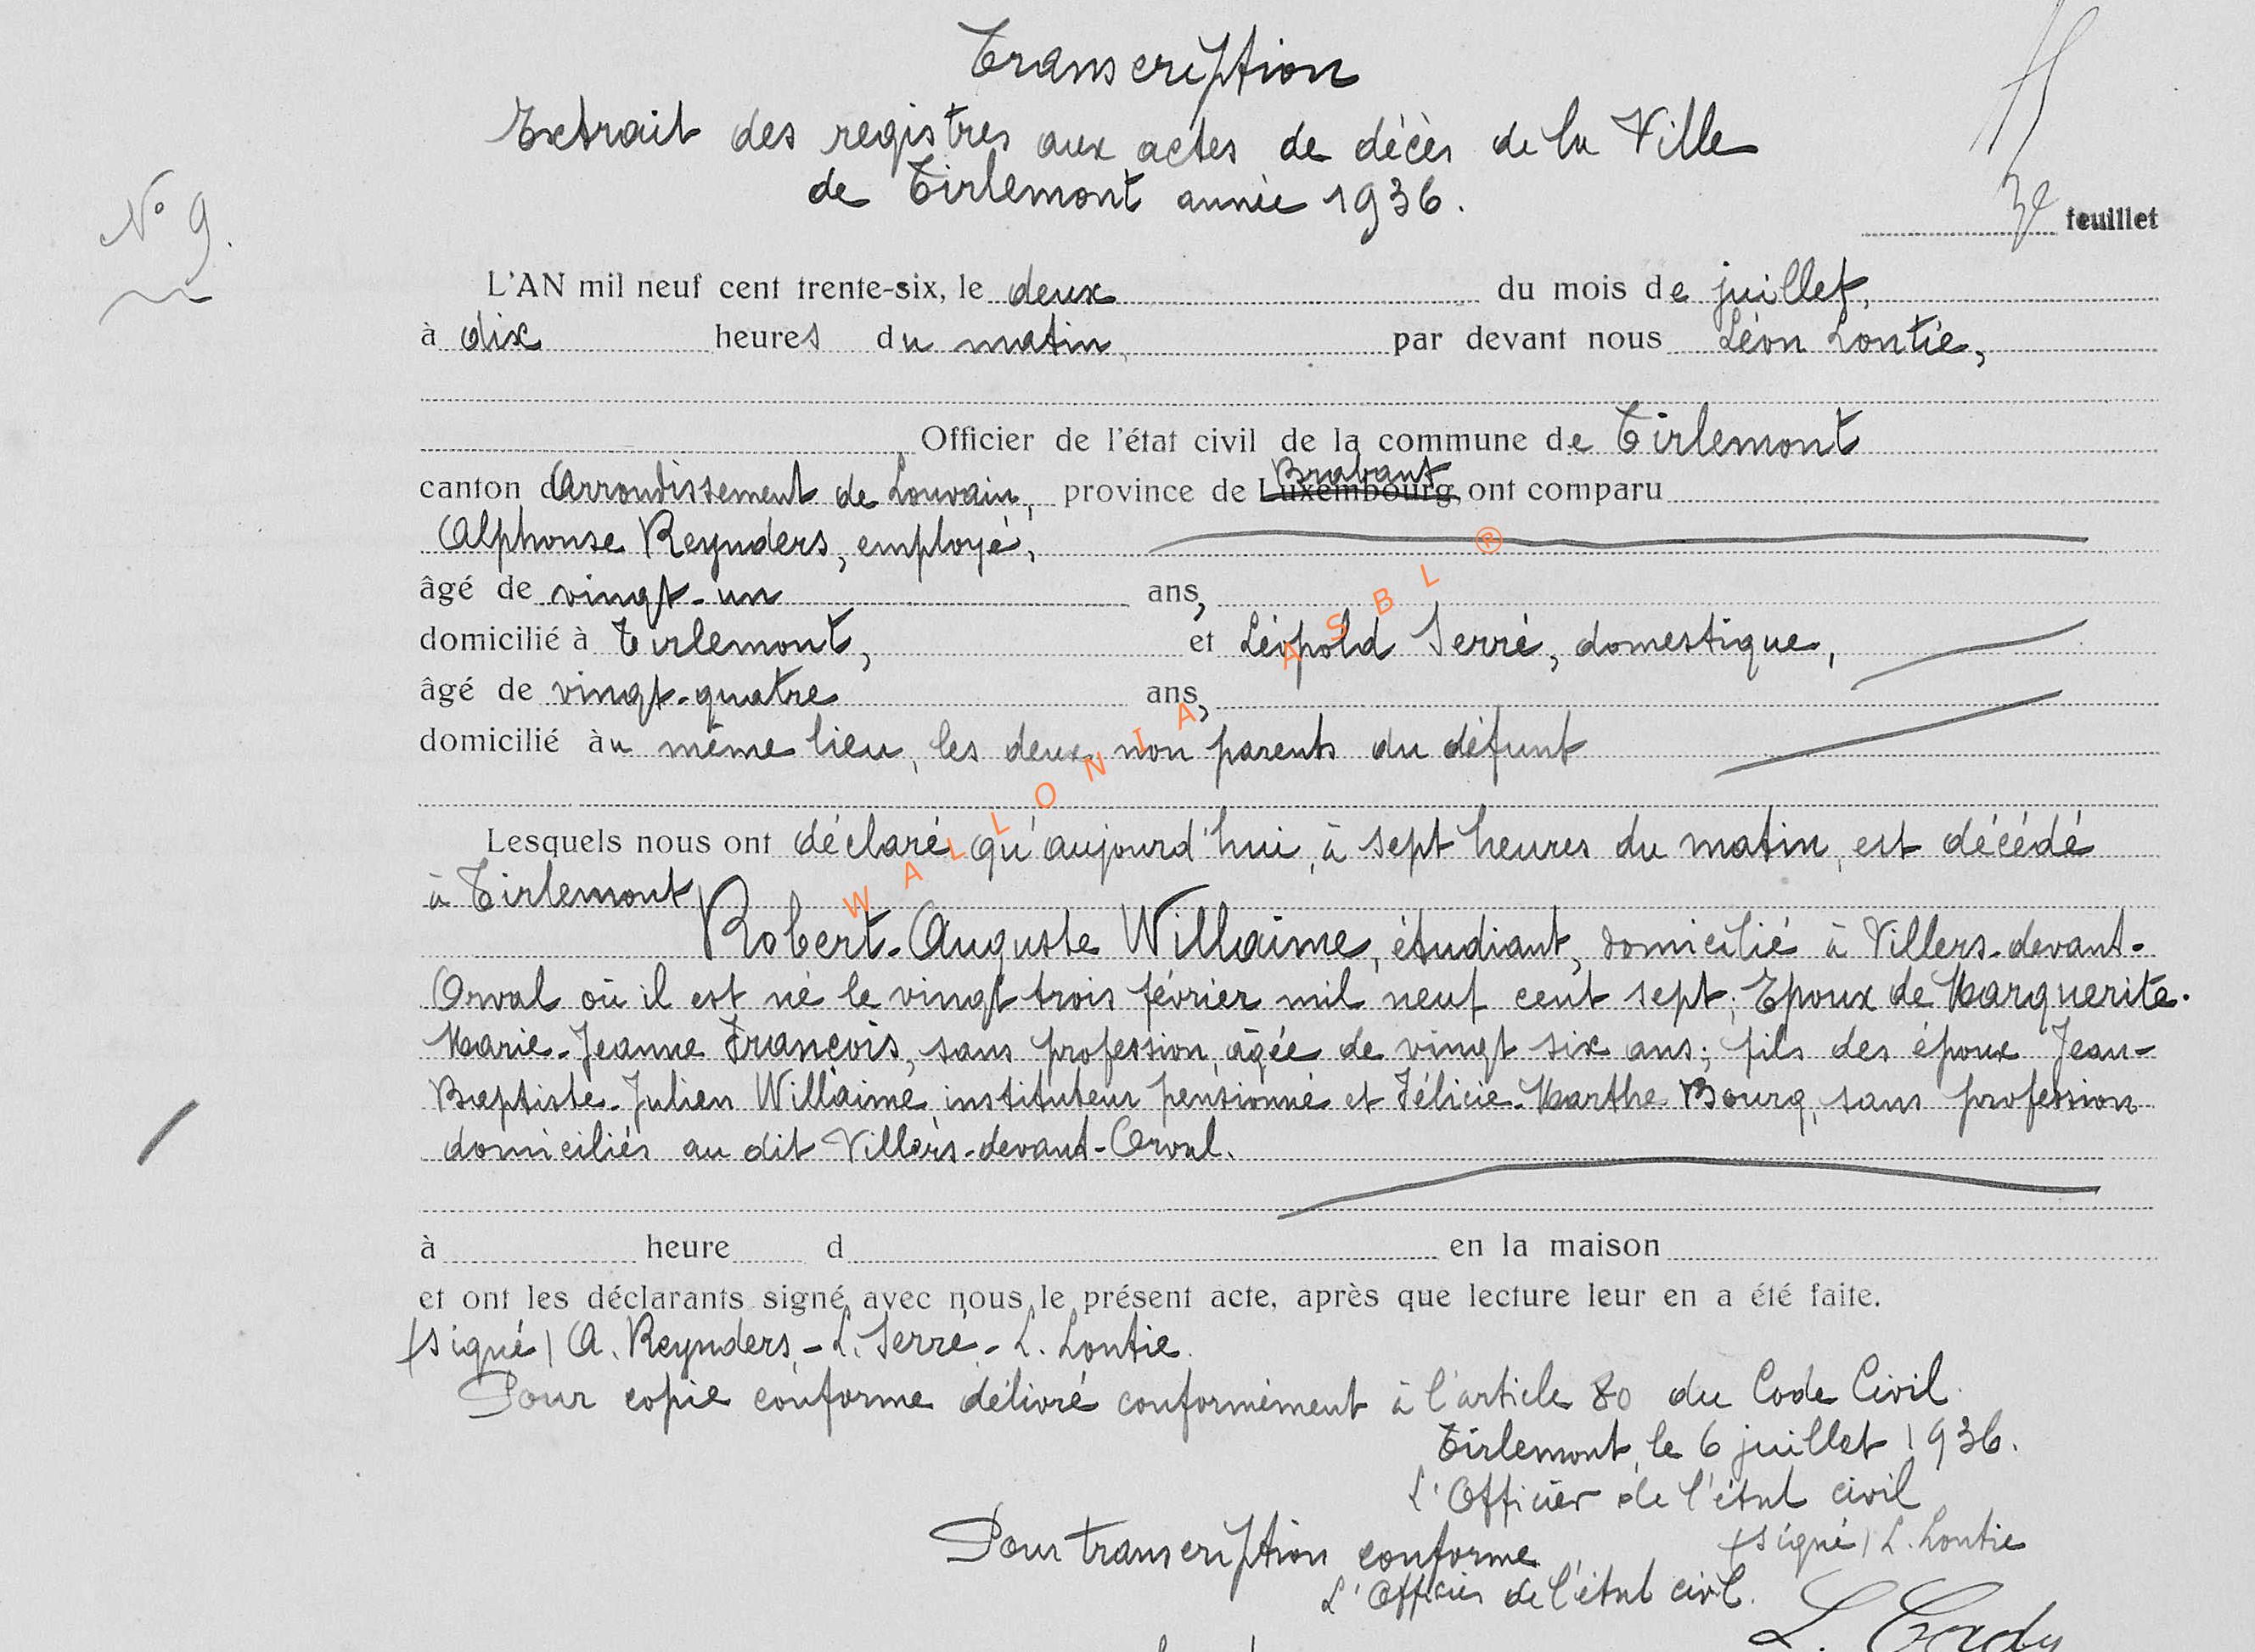 Transcription
Extrait des registres aux actes de décès de la Ville
de Tirlemont année 1936.
N° 9.
3e feuillet
L'AN mil neuf cent trente-six, le deux du mois de juillet,
à dix heures du matin, par devant nous Léon Lontie,
Officier de l'état civil de la commune de Tirlemont
Brabant
canton d'arrondissement de Louvain, province de Luxembourg, ont comparu
Alphonse Reynders, employé,
âgé de vingt-un ans,
domicilié à Tirlemont, et Léopold Serré, domestique,
âgé de vingt-quatre ans,
domicilié au même lieu, les deux non parents du défunt
Lesquels nous ont déclaré qu'aujourd'hui, à sept heures du matin, est décédé
à Tirlemont
Robert-Auguste Willaime, étudiant, domicilié à Villers-devant-
Orval où il est né le vingt trois février mil neuf cent sept; Epoux de Marguerite-
Marie-Jeanne François, sans profession, âgée de vingt six ans; fils des époux Jean-
Baptiste-Julien Willaime, instituteur pensionné et Félicie-Marthe Bourg, sans profession
domiciliés au dit Villers-devant-Orval.
à heure d en la maison
et ont les déclarants signé avec nous le présent acte, après que lecture leur en a été faite.
(signé) A. Reynders - L. Serré - L. Lontie.
Pour copie conforme délivré conformément à l'article 80 du Code Civil.
Tirlemont, le 6 juillet 1936.
L'Officier de l'état civil
(signé) L. Lontie
Pour transcription conforme
L'Officier de l'état civil.
WALLONIA ASBL ®